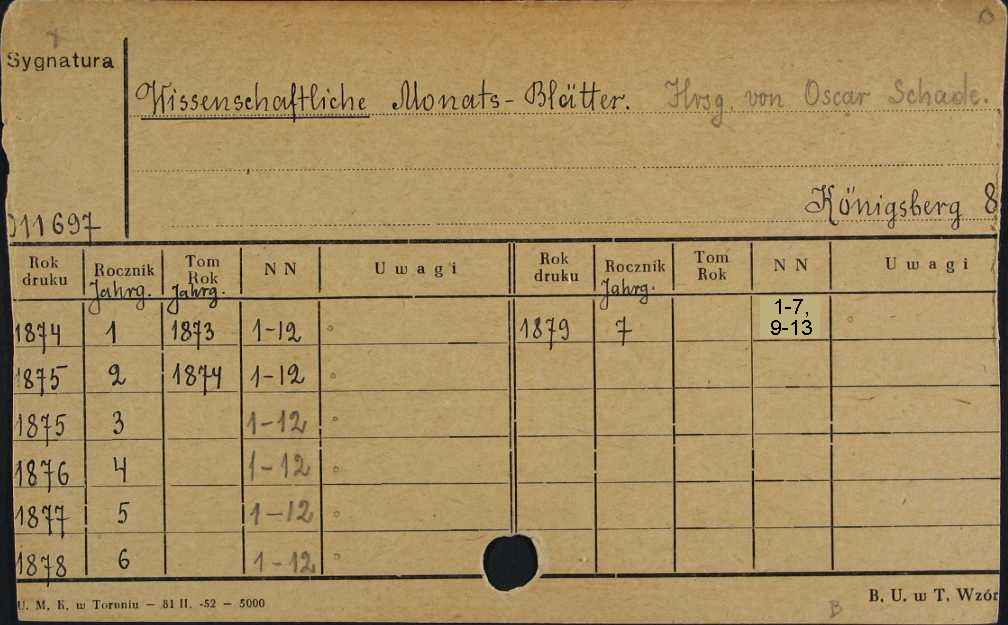 Sygnatura
Wissenschaftliche Monats-Blätter. Hrsg. von Oscar Schade.
Königsberg 8
011697
Rok druku Rocznik Jahrg. Tom Rok Jahrg. NN Uwagi Rok druku Rocznik Jahrg. Tom Rok NN Uwagi
1874 1 1873 1-12 1879 7 1-7, 9-13
1875 2 1874 1-12
1875 3 1-12
1876 4 1-12
1877 5 1-12
1878 6 1-12
U. M. K. w Toruniu — 81 II. -52 — 5000
B. U. w T. Wzór
B